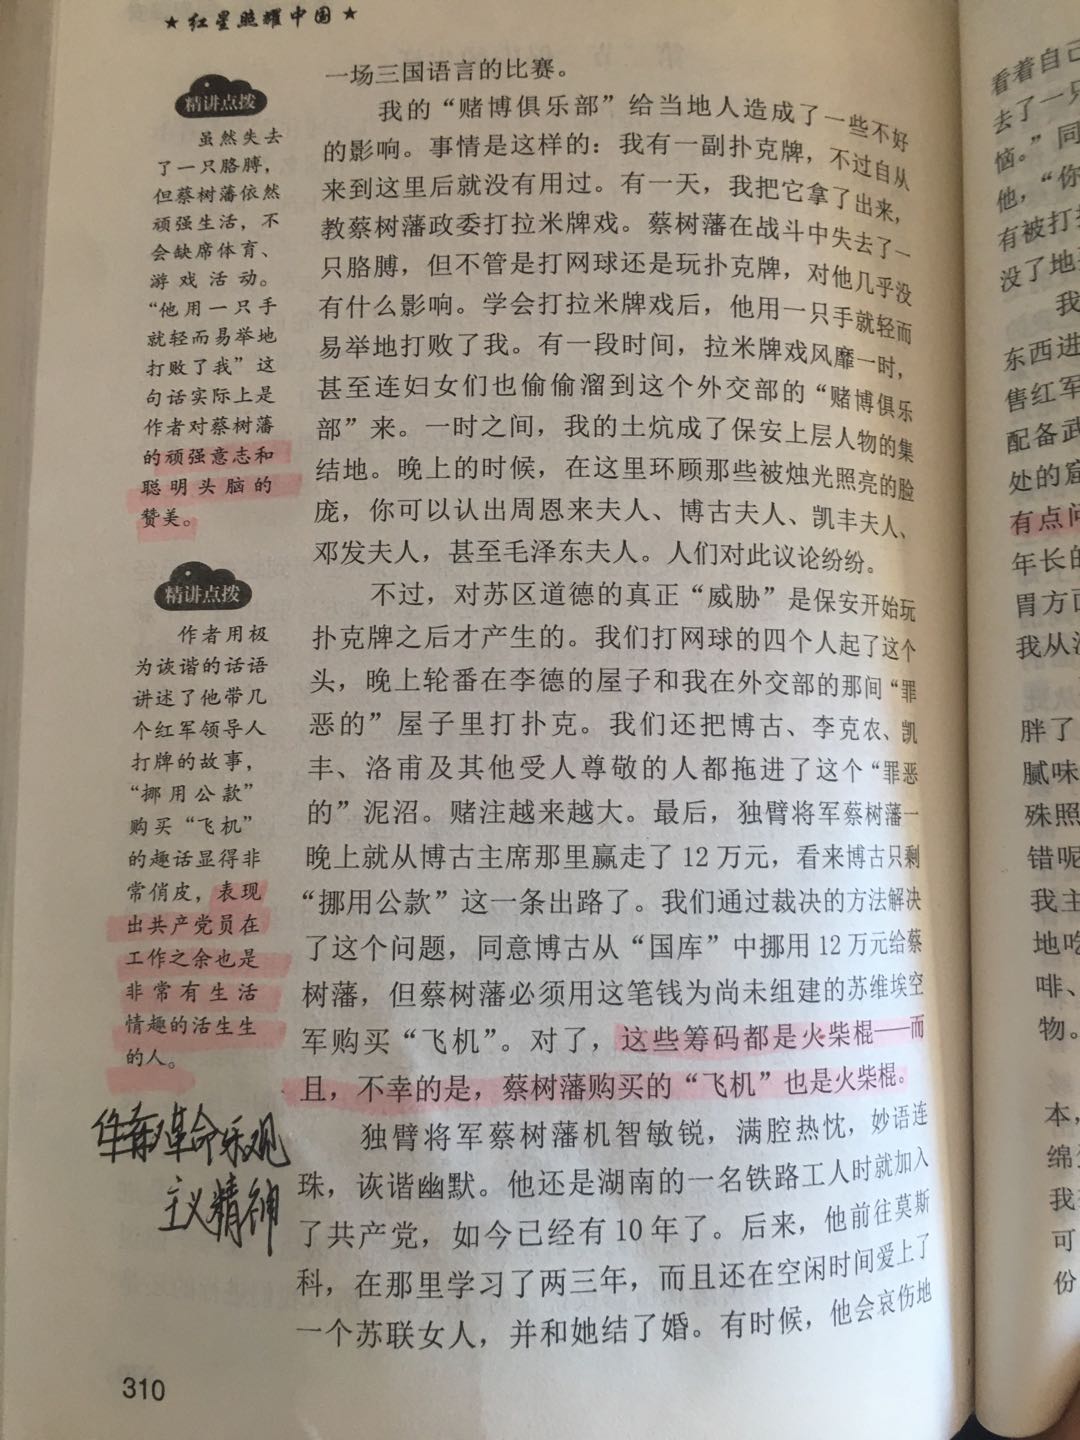 ★ 红星照耀中国 ★
精讲点拨
虽然失去
了一只胳膊，
但蔡树藩依然
顽强生活，不
会缺席体育、
游戏活动。
“他用一只手
就轻而易举地
打败了我”这
句话实际上是
作者对蔡树藩
的顽强意志和
聪明头脑的
赞美。
精讲点拨
作者用极
为诙谐的话语
讲述了他带几
个红军领导人
打牌的故事，
“挪用公款”
购买“飞机”
的趣话显得非
常俏皮，表现
出共产党员在
工作之余也是
非常有生活
情趣的活生生
的人。
革命乐观
主义精神
一场三国语言的比赛。
我的“赌博俱乐部”给当地人造成了一些不好
的影响。事情是这样的：我有一副扑克牌，不过自从
来到这里后就没有用过。有一天，我把它拿了出来，
教蔡树藩政委打拉米牌戏。蔡树藩在战斗中失去了一
只胳膊，但不管是打网球还是玩扑克牌，对他几乎没
有什么影响。学会打拉米牌戏后，他用一只手就轻而
易举地打败了我。有一段时间，拉米牌戏风靡一时，
甚至连妇女们也偷偷溜到这个外交部的“赌博俱乐
部”来。一时之间，我的土炕成了保安上层人物的集
结地。晚上的时候，在这里环顾那些被烛光照亮的脸
庞，你可以认出周恩来夫人、博古夫人、凯丰夫人、
邓发夫人，甚至毛泽东夫人。人们对此议论纷纷。
不过，对苏区道德的真正“威胁”是保安开始玩
扑克牌之后才产生的。我们打网球的四个人起了这个
头，晚上轮番在李德的屋子和我在外交部的那间“罪
恶的”屋子里打扑克。我们还把博古、李克农、凯
丰、洛甫及其他受人尊敬的人都拖进了这个“罪恶
的”泥沼。赌注越来越大。最后，独臂将军蔡树藩一
晚上就从博古主席那里赢走了12万元，看来博古只剩
“挪用公款”这一条出路了。我们通过裁决的方法解决
了这个问题，同意博古从“国库”中挪用12万元给蔡
树藩，但蔡树藩必须用这笔钱为尚未组建的苏维埃空
军购买“飞机”。对了，这些筹码都是火柴棍——而
且，不幸的是，蔡树藩购买的“飞机”也是火柴棍。
独臂将军蔡树藩机智敏锐，满腔热忱，妙语连
珠，诙谐幽默。他还是湖南的一名铁路工人时就加入
了共产党，如今已经有10年了。后来，他前往莫斯
科，在那里学习了两三年，而且还在空闲时间爱上了
一个苏联女人，并和她结了婚。有时候，他会哀伤地
310
看着自己
去了一只
恼。”同
他，“你
有被打
没了地
我
东西进
售红军
配备武
处的窟
有点问
年长的
胃方面
我从没
胖了
腻味
殊照
错呢
我主
地吃
啡、
物。
本，
绵
我
可
份